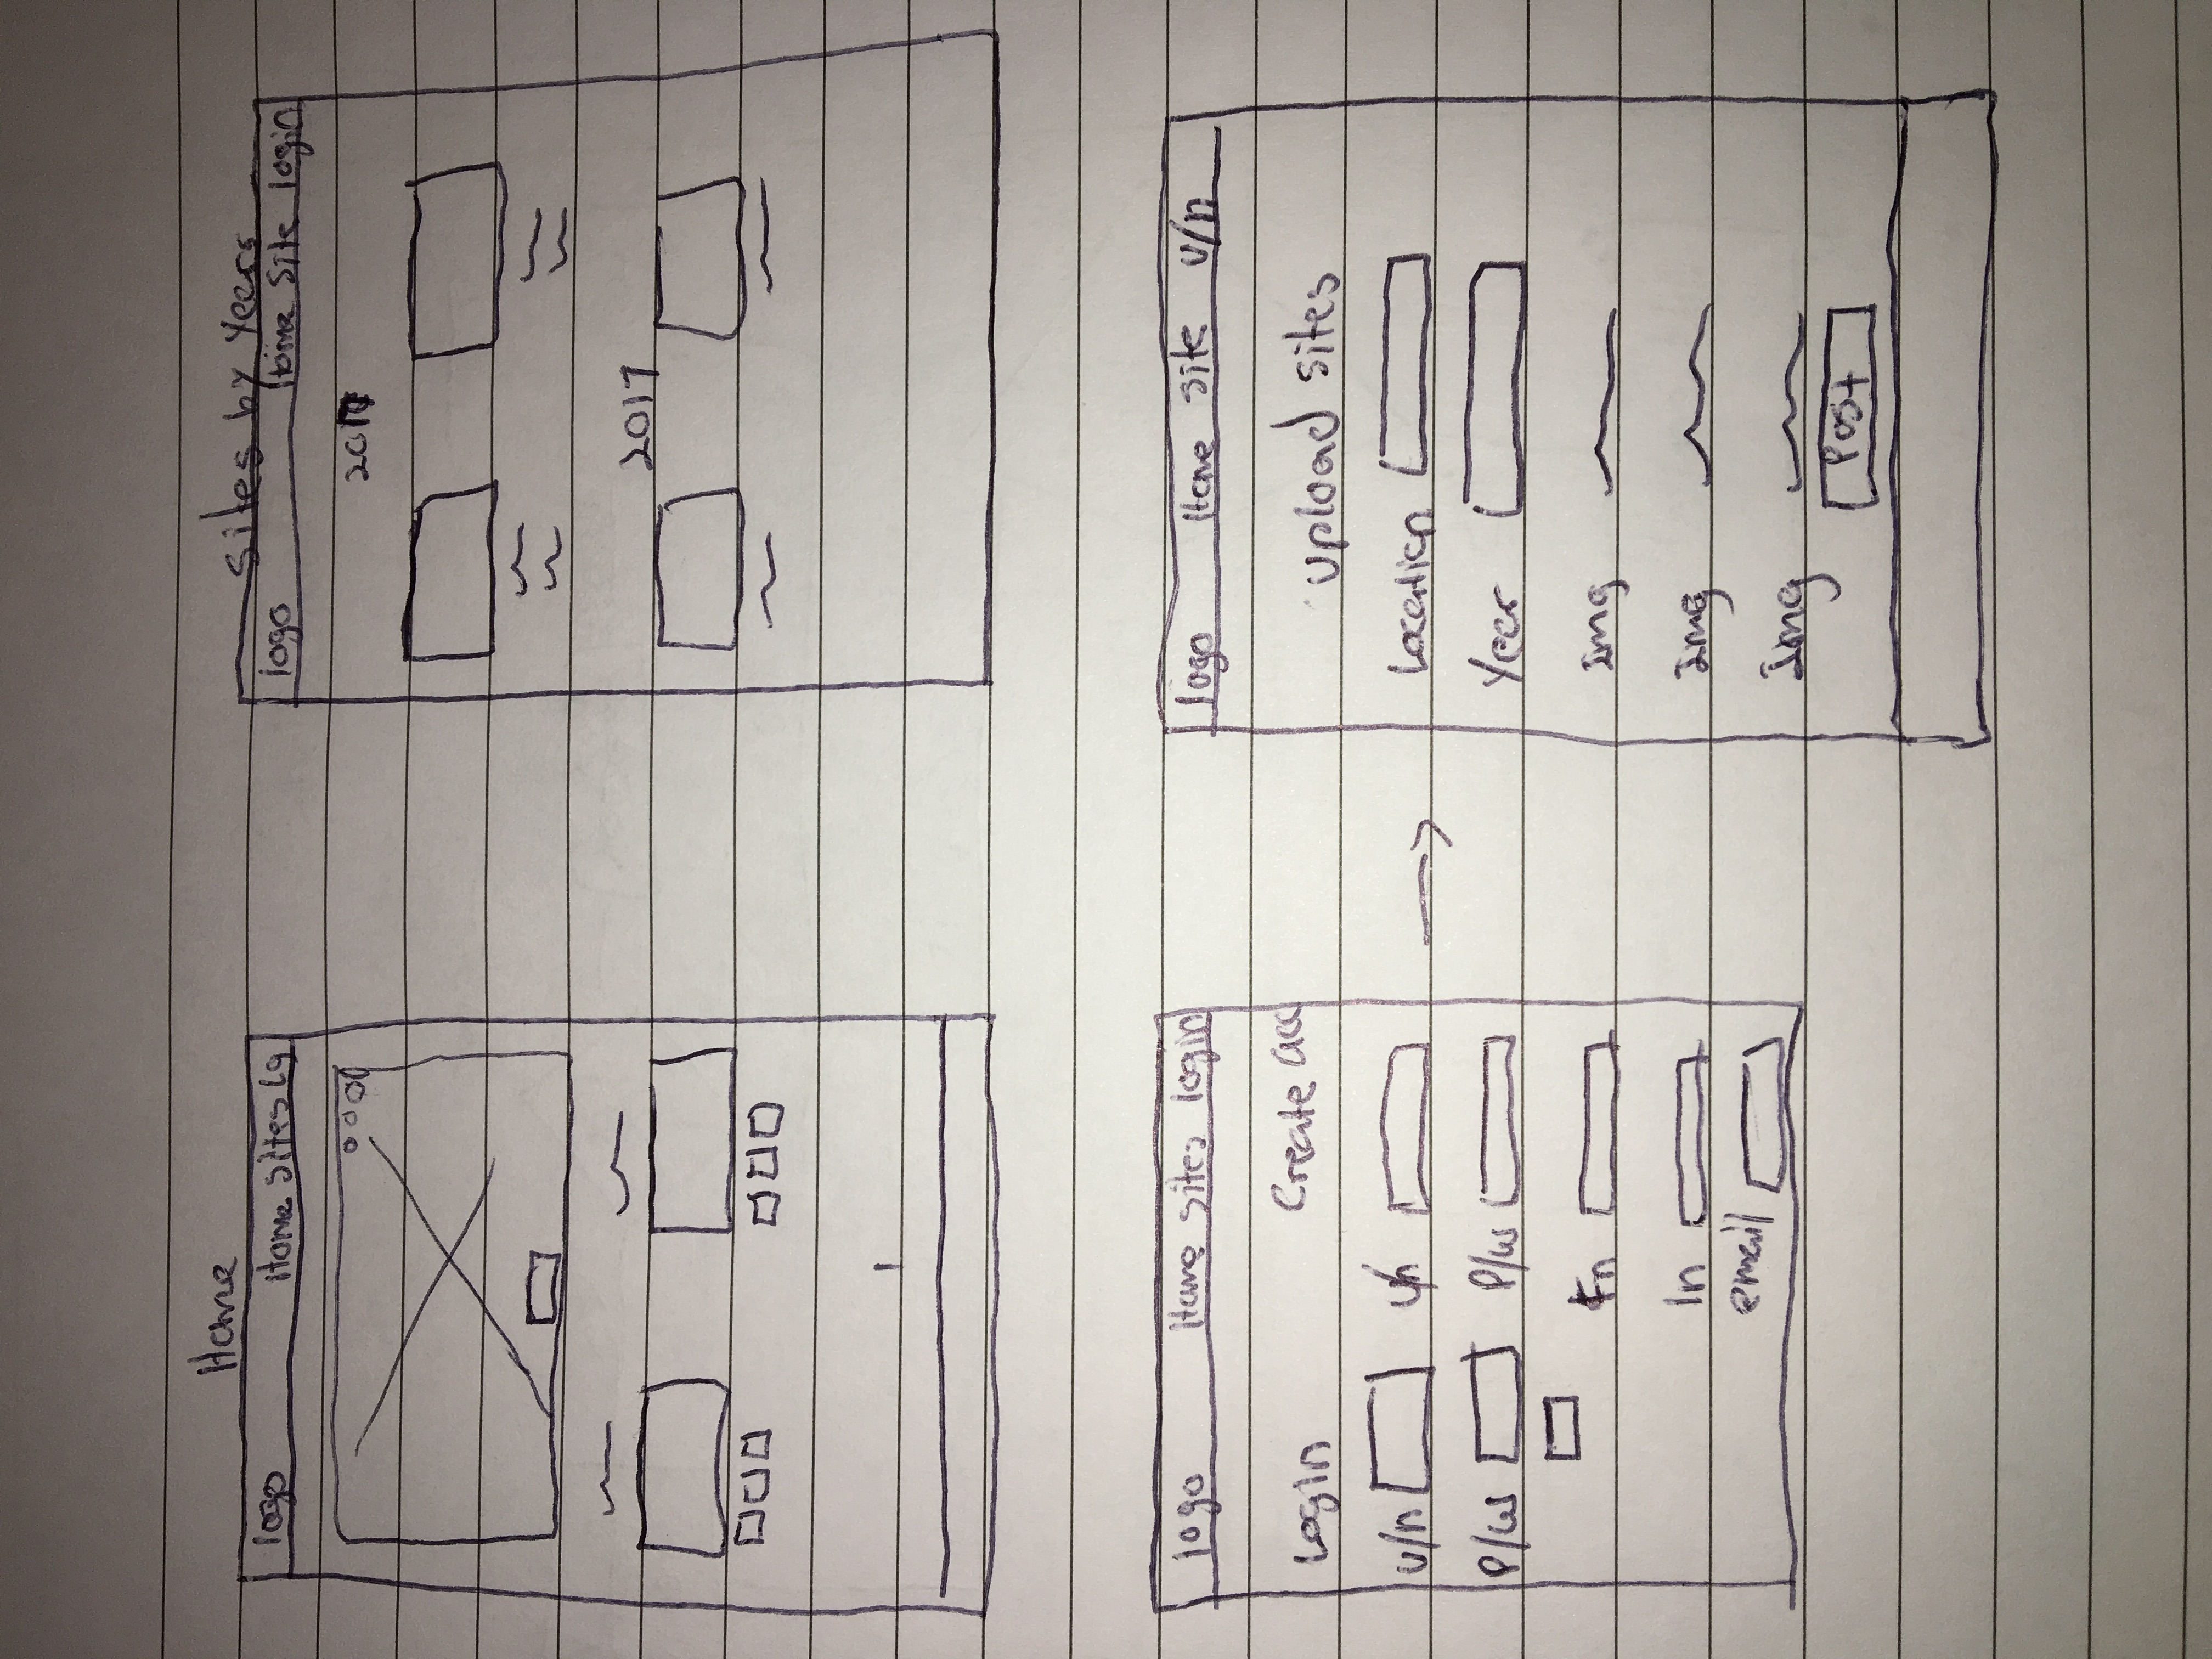 Home
logo Home Sites lg
Sites by Years
logo Home Site login
2017
logo Home sites login
Login
Create acc
u/n u/n
P/w P/w
Fn
ln
email
logo Home site u/n
upload sites
Location
Year
Img
Img
Img
Post